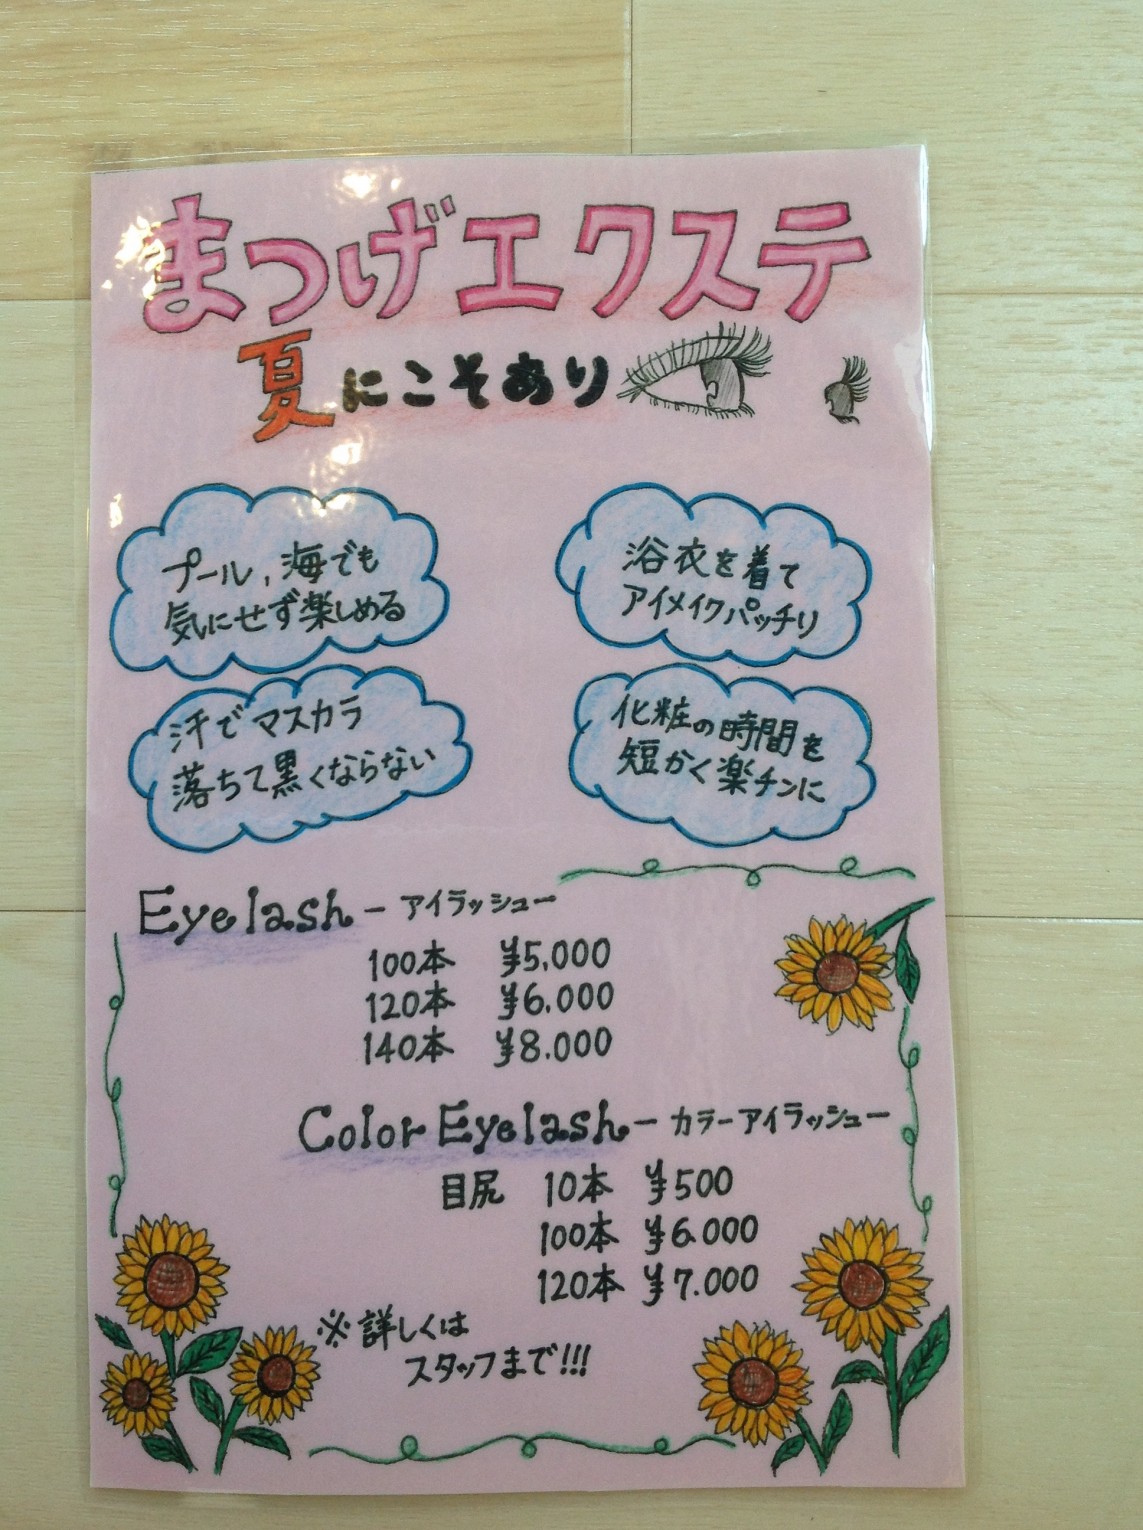 まつげエクステ
夏にこそあり
プール,海でも
気にせず楽しめる
浴衣を着て
アイメイクパッチリ
汗でマスカラ
落ちて黒くならない
化粧の時間を
短かく楽チンに
Eyelash - アイラッシュー
100本 ¥5,000
120本 ¥6.000
140本 ¥8.000
Color Eyelash - カラーアイラッシュー
目尻 10本 ¥500
100本 ¥6.000
120本 ¥7.000
※詳しくは
スタッフまで!!!